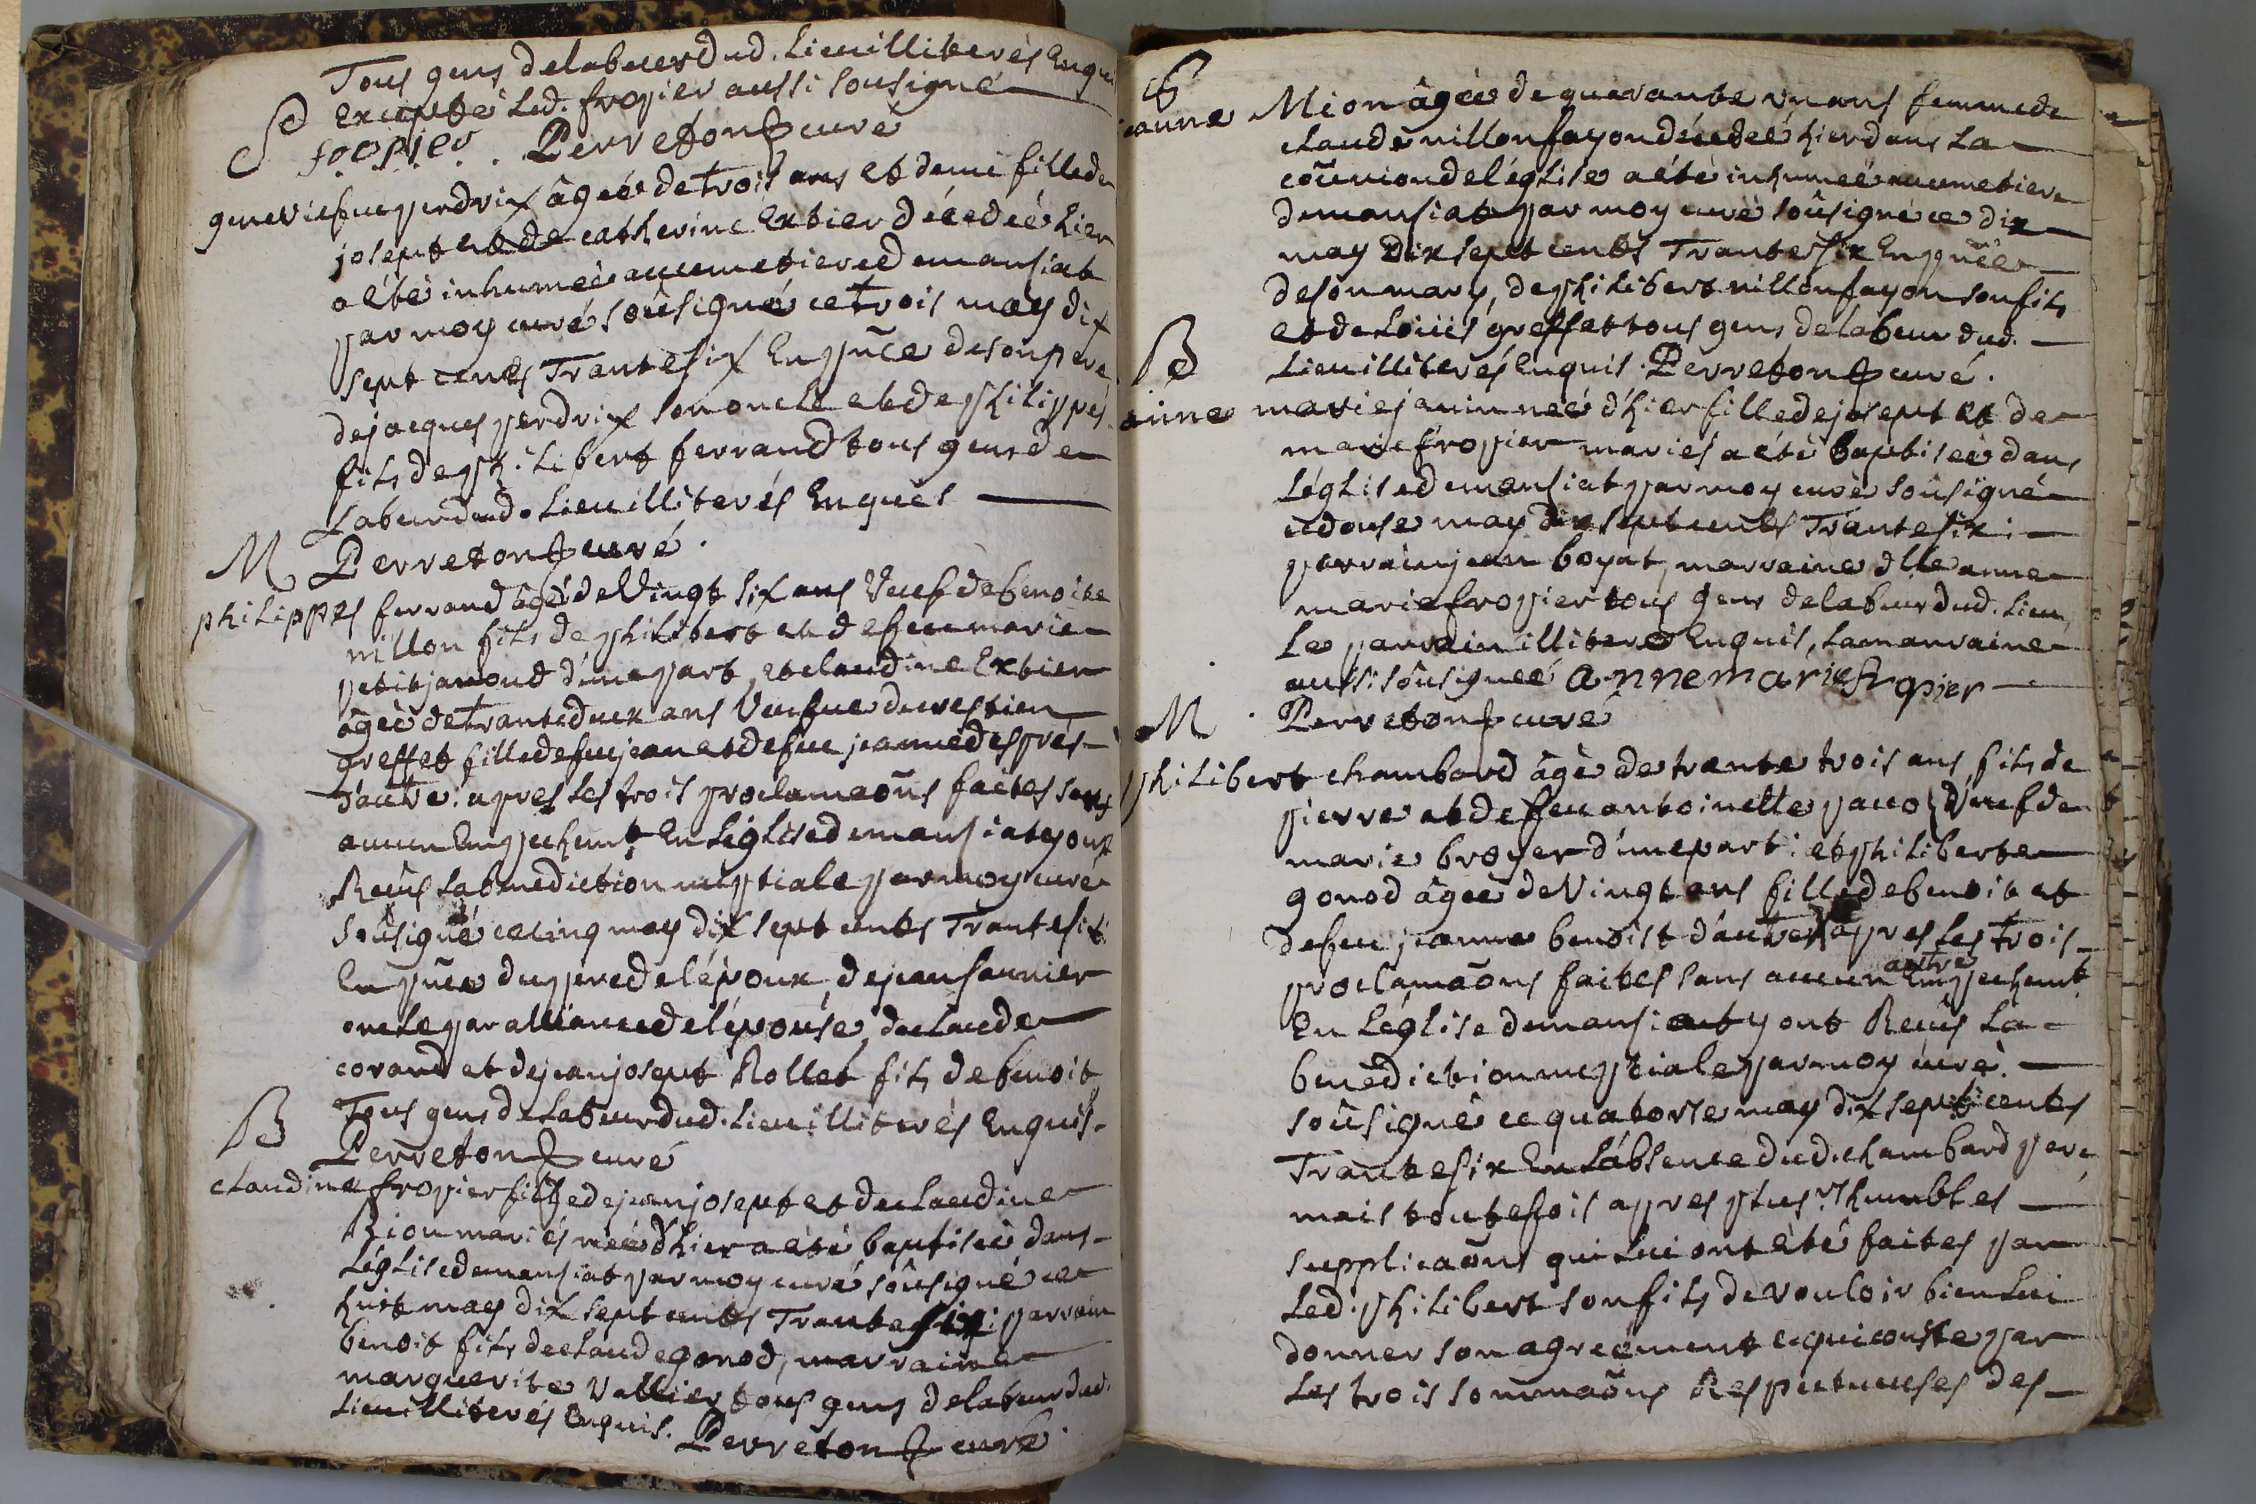 Tous gens de labeur dud. Lieu illiterés Enquis
Excepte Led. fropier aussi sousigné
fropier. Perreton curé
S
geneviefue perdrix âgeé de trois ans et demi fille de
josept et de catherine Extier décedeé hier
a été inhumeé au cimetiere de mansiat
par moy curé soûsigné ce trois may dix
sept cents Trante six En pñce de son pere
de jacques perdrix son oncle et de philippes
fils de philibert ferrand tous gens de
Labeur dud. Lieu illiterés Enquis
Perreton curé.
M
philippes ferrand âgé de Vingt six ans Veuf de benoite
nillon fils de philibert et de feue marie
petitjanoud d'une part, et claudine Extier
âgeé de Trante deux ans Veufue de crestien
greffet fille de feu jean et de feue jeanne després
d'autre: apres Les trois proclamaõns faites sans
aucun Empechemt En Léglise de mansiat y ont
Reçus La benediction nuptiale par moy curé
soûsigné ce cinq may dix sept cents Trante six:
En pñce du pere de lépoux, de jean saunier
oncle par alliance de lépouse, de claude
corand et de jean josept Rollet fils de benoit
Tous gens de Labeur dud. Lieu illiterés Enquis.
Perreton curé
B
claudine fropier fille de jean josept et de claudine
Rion mariés neé d'hier a été baptiseé dans
Léglise de mansiat par moy curé soûsigné ce
huit may dix sept cents Trante six: parrain
benoit fils de claude gonod, marraine
marguerite Vallier tous gens de labeur dud.
Lieu illiterés Enquis. Perreton curé.
S
jeanne Mion âgeé de quarante un ans femme de
claude nillon fayon décedeé hier dans La
cõunion de léglise a été inhumeé au cimetiere
de mansiat par moy curé soûsigné ce dix
may Dix sept cents Trante six En pñce
de son mary, de philibert nillon fayon son fils
et de Loüis greffet tous gens de labeur dud.
Lieu illiterés Enquis. Perreton curé.
B
anne marie janin neé d'hier fille de josept et de
marie fropier mariés a été baptiseé dans
Léglise de mansiat par moy curé soûsigné
ce douse may dix sept cents Trante six:
parrain jean boyat, marraine dlle anne
marie fropier tous gens de labeur dud. Lieu
Le parrain illiteré Enquis, La marraine
aussi soûsigneé anne marie fropier
Perreton curé
M
philibert chambard âgé de trante trois ans fils de
pierre et de feue antoinette Veuf de
marie broyer d'une part: et philiberte
gonod âgeé de Vingt ans fille de benoit et
de feue jeanne benoist d'autre: apres Les trois
proclamaõns faites sans aucun autre Empechemt
En Léglise de mansiat y ont Reçus La
benédiction nuptiale par moy curé.
soûsigné ce quatorse may dix sept cents
Trante six En Lábsence dud. chambard pere
mais toutefois apres plusrs humbles
supplicaõns qui Lui ont été faites par
Led. philibert son fils de vouloir bien Lui
donner son agreément ce qui conste par
Les trois sommaõns Respectueuses des